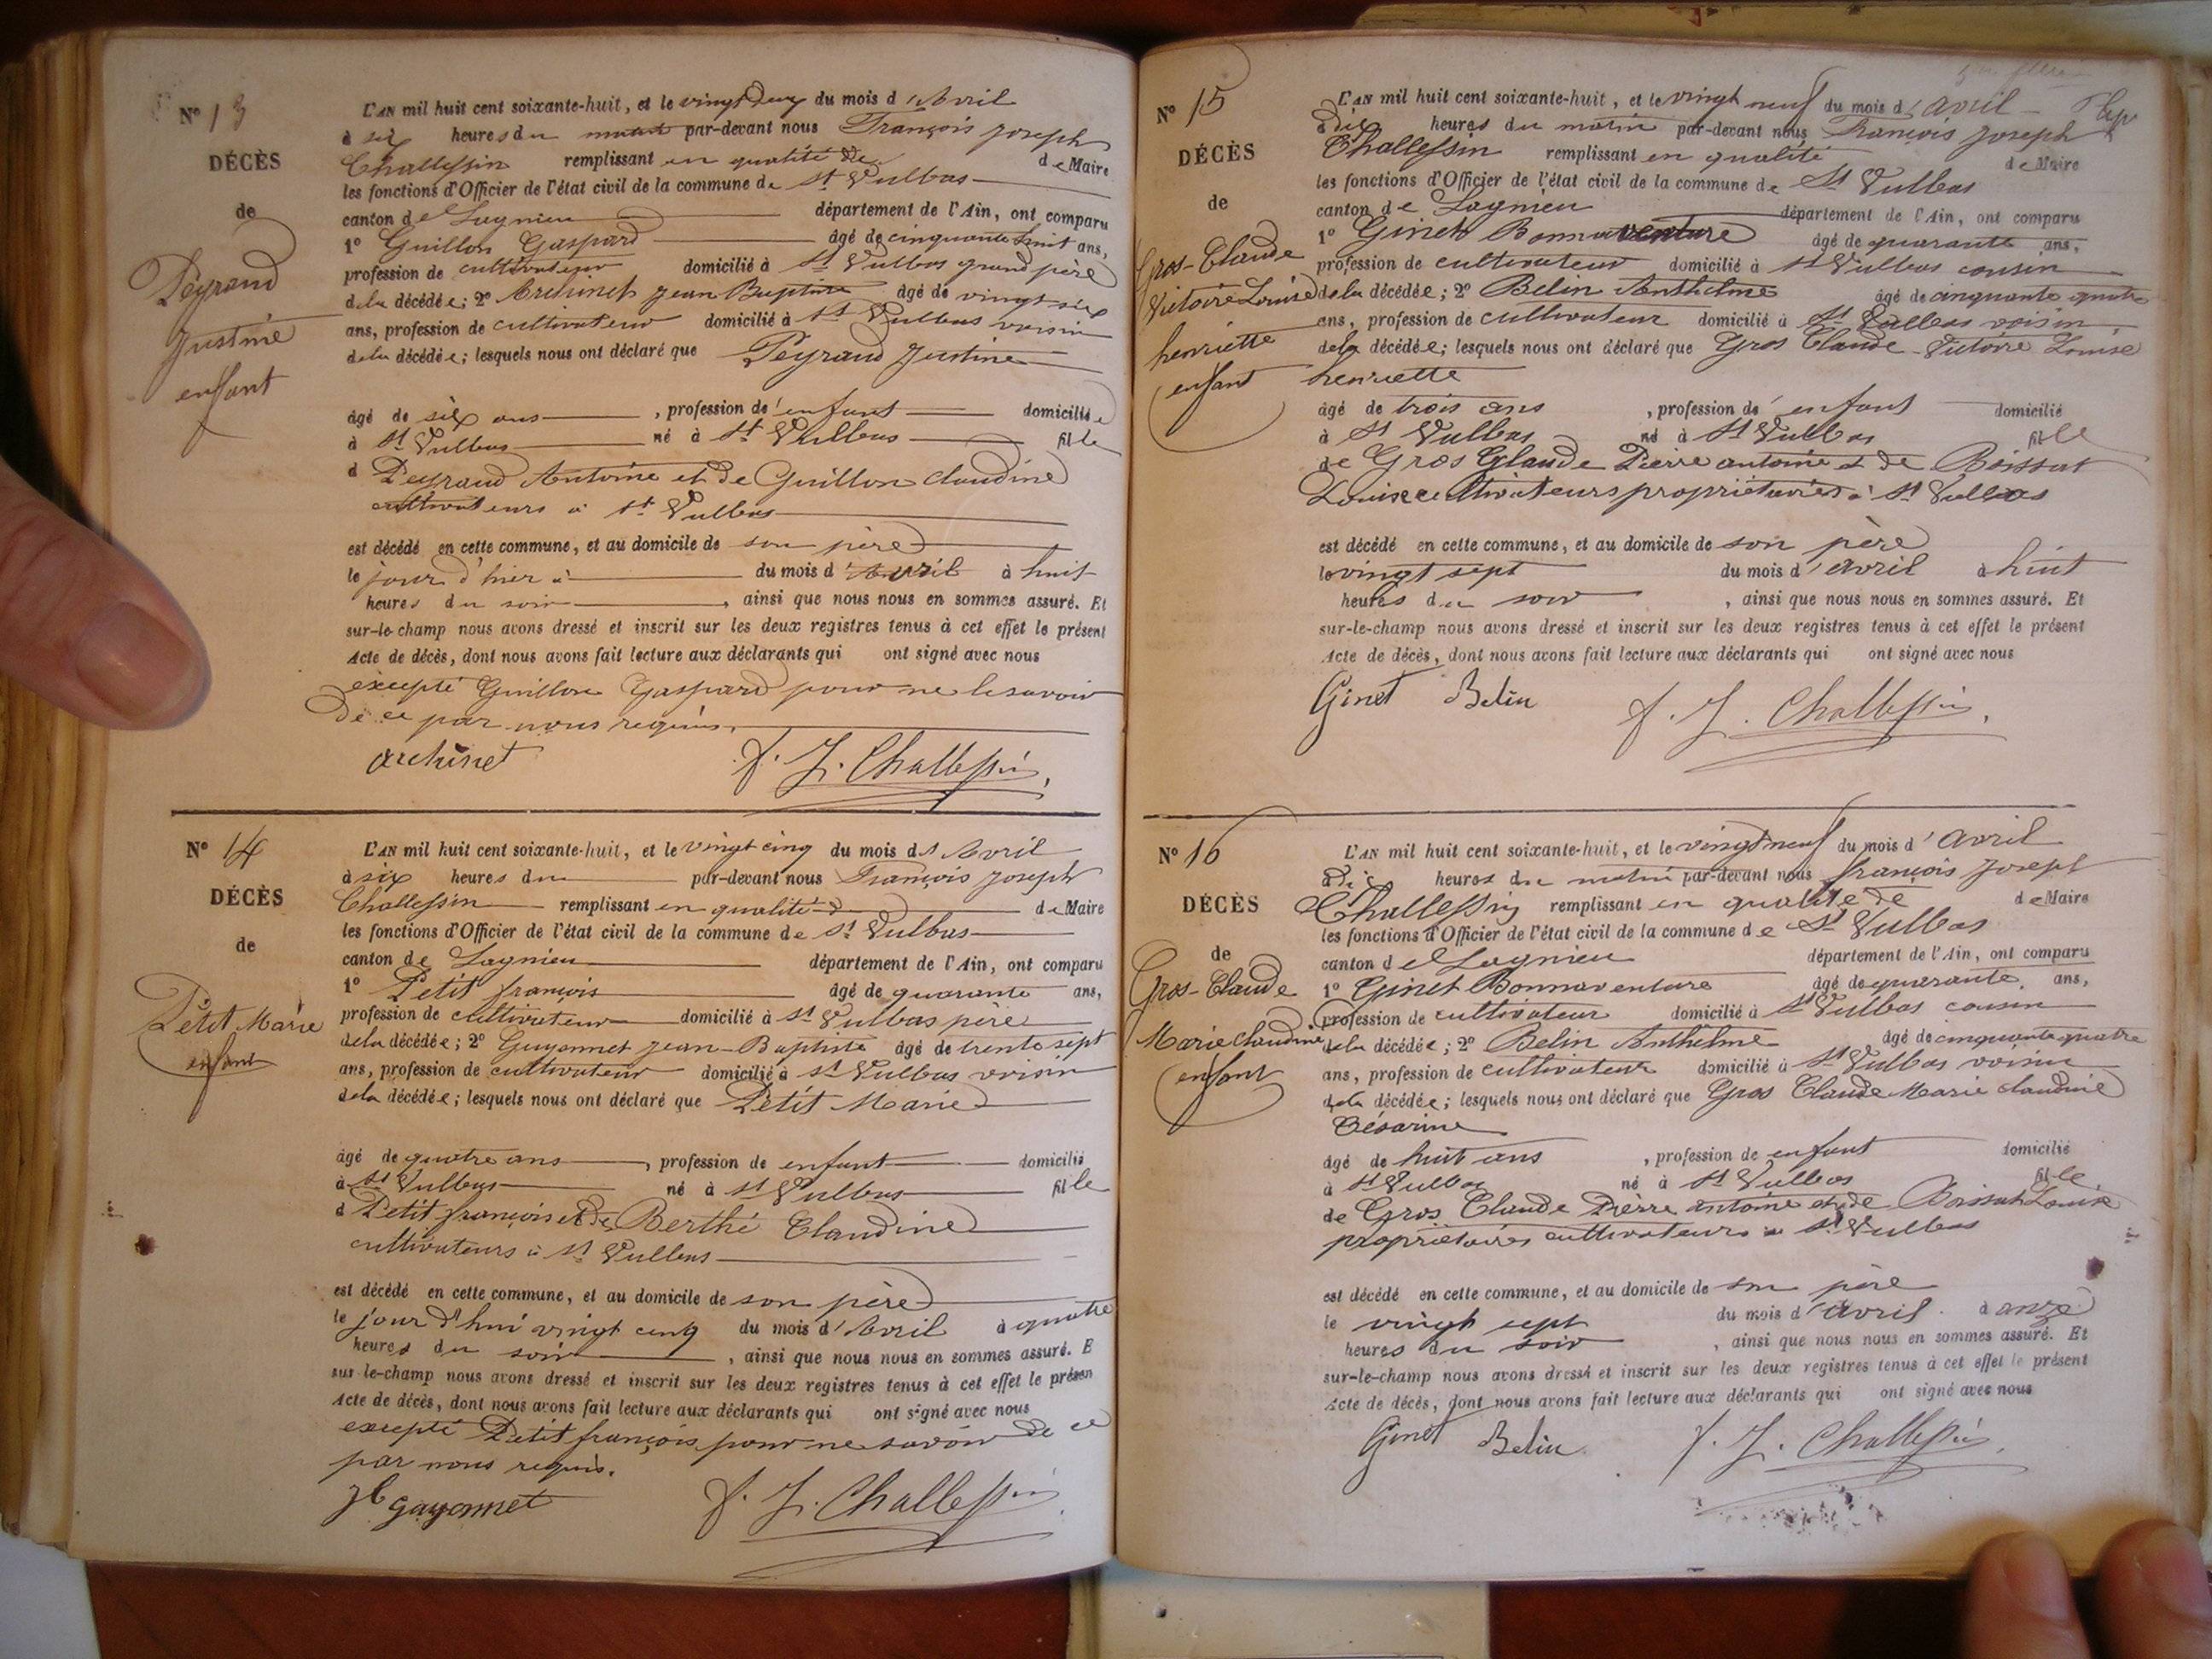 N° 13
DÉCÈS
de
Peyraud
Justine
enfant
L'AN mil huit cent soixante-huit, et le vingt deux du mois d'Avril
à six heures du par-devant nous François Joseph
Challessin remplissant en qualité de de Maire
les fonctions d'Officier de l'état civil de la commune de St Vulbas
canton de Lagnieu département de l'Ain, ont comparu
1° Guillon Gaspard âgé de cinquante huit ans,
profession de cultivateur domicilié à St Vulbas grand père
de la décédée; 2° Archinet Jean Baptiste âgé de vingt six
ans, profession de cultivateur domicilié à St Vulbas voisin
de la décédée; lesquels nous ont déclaré que Peyraud Justine
âgé de six ans, profession d'enfant domiciliée
à St Vulbas né à St Vulbas fille
d Peyraud Antoine et de Guillon Claudine
cultivateurs à St Vulbas
est décédé en cette commune, et au domicile de son père
le jour d'hier à du mois d'Avril à huit
heures du soir, ainsi que nous nous en sommes assuré. Et
sur-le-champ nous avons dressé et inscrit sur les deux registres tenus à cet effet le présent
Acte de décès, dont nous avons fait lecture aux déclarants qui ont signé avec nous
excepté Guillon Gaspard pour ne le savoir
de ce par nous requis.
Archinet f. J. Challessin
N° 14
DÉCÈS
de
Petit Marie
enfant
L'AN mil huit cent soixante-huit, et le vingt cinq du mois d'Avril
à six heures du par-devant nous François Joseph
Challessin remplissant en qualité d de Maire
les fonctions d'Officier de l'état civil de la commune de St Vulbas
canton de Lagnieu département de l'Ain, ont comparu
1° Petit françois âgé de quarante ans,
profession de cultivateur domicilié à St Vulbas père
de la décédée; 2° Guyonnet Jean-Baptiste âgé de trente sept
ans, profession de cultivateur domicilié à St Vulbas voisin
de la décédée; lesquels nous ont déclaré que Petit Marie
âgé de quatre ans, profession de enfant domicilié
à St Vulbas né à St Vulbas fille
d Petit françois et de Berthé Claudine
cultivateurs à St Vulbas
est décédé en cette commune, et au domicile de son père
le jour d'hui vingt cinq du mois d'Avril à quatre
heures du soir, ainsi que nous nous en sommes assuré. E
sur-le-champ nous avons dressé et inscrit sur les deux registres tenus à cet effet le présen
Acte de décès, dont nous avons fait lecture aux déclarants qui ont signé avec nous
excepté Petit françois pour ne savoir de ce
par nous requis.
Jb Gayonnet f. J. Challessin
N° 15
DÉCÈS
de
Gros-Claude
Victoire Louise
henriette
enfant
L'AN mil huit cent soixante-huit, et le vingt neuf du mois d'avril
à dix heures du matin par-devant nous François Joseph
Challessin remplissant en qualité de Maire
les fonctions d'Officier de l'état civil de la commune de St Vulbas
canton de Lagnieu département de l'Ain, ont comparu
1° Ginet Bonnaventure âgé de quarante ans,
profession de cultivateur domicilié à St Vulbas cousin
de la décédée; 2° Belin Anthelme âgé de cinquante quatre
ans, profession de cultivateur domicilié à St Vulbas voisin
de la décédée; lesquels nous ont déclaré que Gros Claude Victoire Louise
henriette
âgé de trois ans, profession d'enfant domicilié
à St Vulbas né à St Vulbas fille
de Gros Claude Pierre antoine et de Boissat
Louise cultivateurs propriétaires à St Vulbas
est décédé en cette commune, et au domicile de son père
le vingt sept du mois d'avril à huit
heures du soir, ainsi que nous nous en sommes assuré. Et
sur-le-champ nous avons dressé et inscrit sur les deux registres tenus à cet effet le présent
Acte de décès, dont nous avons fait lecture aux déclarants qui ont signé avec nous
Ginet Belin f. J. Challessin
N° 16
DÉCÈS
de
Gros-Claude
Marie Claudine
enfant
L'AN mil huit cent soixante-huit, et le vingt neuf du mois d'avril
à dix heures du matin par-devant nous françois Joseph
Challessin remplissant en qualité de de Maire
les fonctions d'Officier de l'état civil de la commune de St Vulbas
canton de Lagnieu département de l'Ain, ont comparu
1° Ginet Bonnaventure âgé de quarante ans,
profession de cultivateur domicilié à St Vulbas cousin
de la décédée; 2° Belin Anthelme âgé de cinquante quatre
ans, profession de cultivateur domicilié à St Vulbas voisin
de la décédée; lesquels nous ont déclaré que Gros Claude Marie Claudine
Césarine
âgé de huit ans, profession de enfant domicilié
à St Vulbas né à St Vulbas fille
de Gros Claude Pierre antoine et de Boissat Louise
propriétaires cultivateurs à St Vulbas
est décédé en cette commune, et au domicile de son père
le vingt sept du mois d'avril à onze
heures du soir, ainsi que nous nous en sommes assuré. Et
sur-le-champ nous avons dressé et inscrit sur les deux registres tenus à cet effet le présent
Acte de décès, dont nous avons fait lecture aux déclarants qui ont signé avec nous
Ginet Belin f. J. Challessin